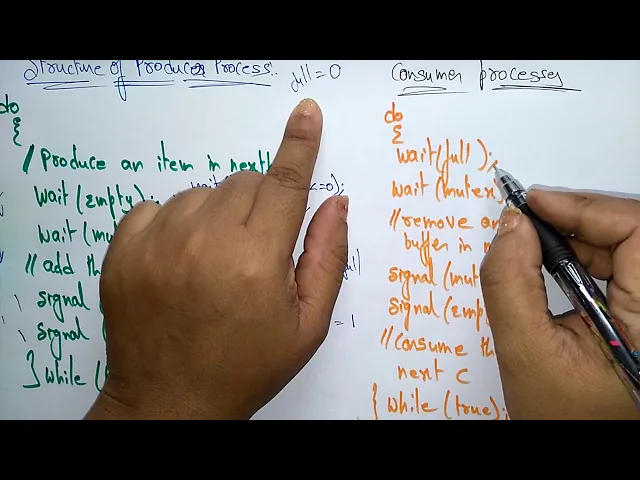 Structure of Producer Process:
full = 0
do
{
// Produce an item in next
wait (empty);
<=0);
wait (mu
// add th
signal
signal
= 1
} while (
Consumer processes
do
{
wait (full);
wait (mutex)
// remove an
buffer in
signal (mut
signal (emp
// Consume th
next c
} while (true);